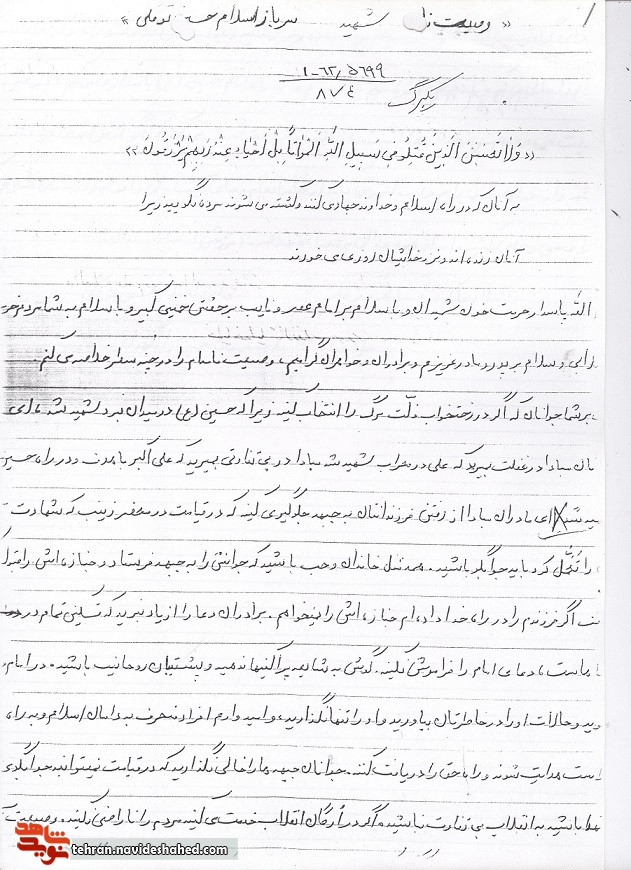 « وصیت نا شهید سرباز اسلام حسن توملی »
۱-۶۲/۵۶۹۹
۸۷۴
یکبرگ
«وَلاٰ تَحْسَبَنَّ الَّذِینَ قُتِلُو فِی سَبِیلِ اللّٰهِ اَمْوٰاتاً بَلْ اَحْیٰاءٌ عِنْدَ رَبِّهِمْ یُرْزَقُونَ»
به آنان که در راه اسلام و خداوند جهاد می کنند و کشته می شوند مرده نگویید زیرا
آنان زنده اند و نزد خدایشان روزی می خورند
الله پاسدار حرمت خون شهیدان و با سلام بر امام عصر و نایب بر حقش خمینی کبیر و با سلام به شما مردم
و سلام بر پدر و مادر عزیزم و برادران و خواهران گرامیم، وصیت نامه ام را در چند سطر خلاصه می کنم.
بر شما جوانان که اگر در رختخواب ذلّت مرگ را انتخاب کنید زیرا که حسین (ع) در میدان نبرد شهید شد، ای
مبادا در غفلت بمیرید که علی در محراب شهید شد مبادا در بی تفاوتی بمیرید که علی اکبر با هدف و در راه حسین
شد ای مادران مبادا از رفتن فرزندانتان به جبهه جلوگیری کنید که در قیامت در محضر زینب که شهادت
را تحمّل کرد باید جوابگو باشید. همه مثل خاندان وهب باشید که جوانش را به جبهه فرستاد و جنازه اش را
اگر فرزندم را در راه خدا داده ام جنازه اش را نمیخواهم. برادران دعا را از یاد نبرید که تسکین تمام دردها
ماست، دعای امام را فراموش نکنید. گوش به شایعه پراکنیها ندهید و پشتیبان روحانیت باشید. در امام
و حالات او را در خاطرتان بیاورید و او را تنها نگذارید، و امیدوارم افراد منحرف به دامان اسلام و به راه
راست هدایت شوند و راه حق را دریافت کنند. جوانان جبهه ها را خالی نگذارید که در قیامت نمیتوانید جوابگوی
باشید به انقلاب بی تفاوت نباشید و اگر در ارگان انقلاب خدمت می کنید مردم را ناراضی نکنید. وصیت
شاهد
نوید
tehran.navideshahed.com